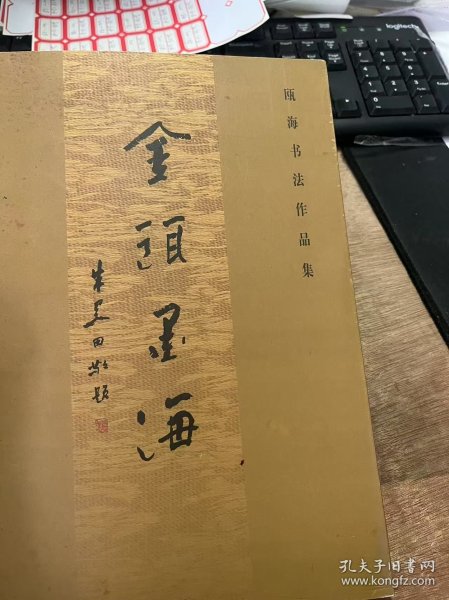 logitech
瓯海书法作品集
金甌墨海
朱关田敬题
孔夫子旧书网
www.kongfz.com